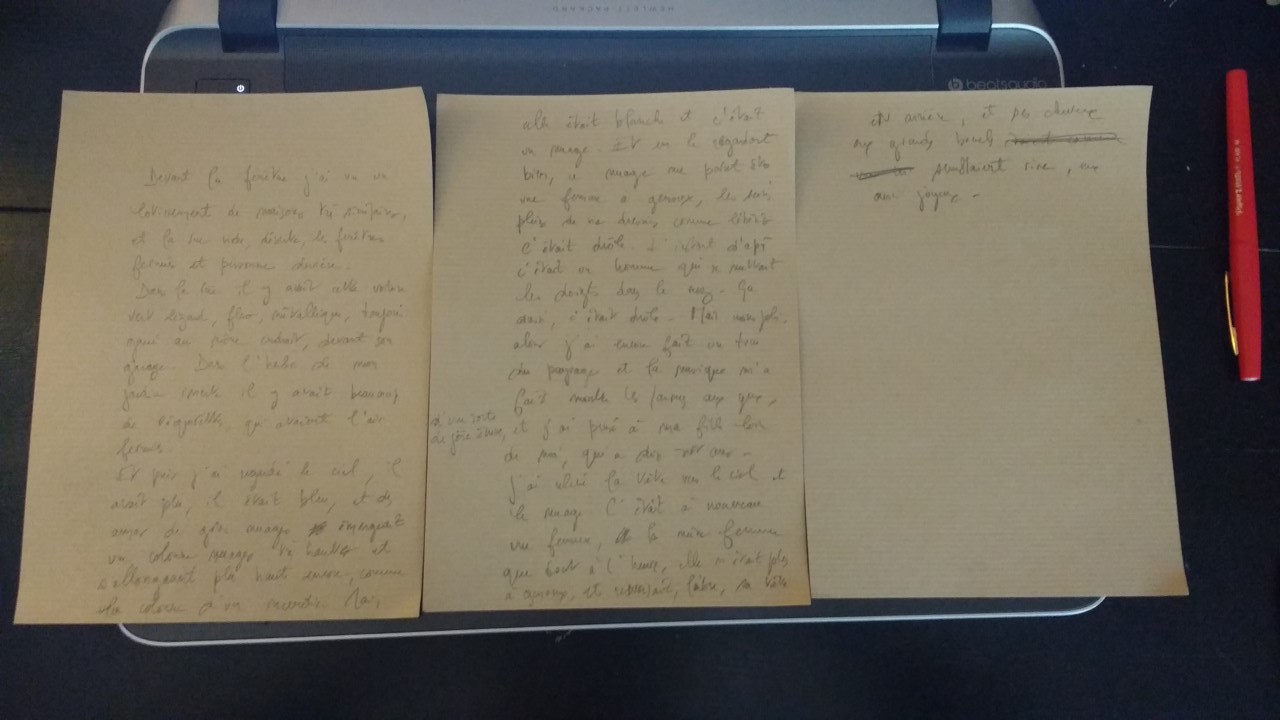 HEWLETT-PACKARD
beatsaudio
Devant la fenêtre j'ai vu un
de maisons très similaires,
et la rue vide, déserte, les fenêtres
fermées et personne derrière.
Dans la rue il y avait cette voiture
vert lézard, fluo, métallique, toujours
au même endroit, devant son
garage. Dans l'herbe de mon
jardin il y avait beaucoup
de pâquerettes, qui avaient l'air
fermées.
Et puis j'ai regardé le ciel, il
avait plu, il était bleu, et des
amas de gros nuages émergeait
une colonne nuage en hauteur et
s'allongeant plus haut encore, comme
la colonne d'un incendie. Mais,
elle était blanche et c'était
un nuage. Et en le regardant
bien, ce nuage me parut être
une femme à genoux, les seins
comme
C'était drôle. L'instant d'après
c'était un homme qui se mettait
les doigts dans le nez. Ça
aussi, c'était drôle. Mais moins joli.
alors j'ai encore fait un tour
du paysage et la musique m'a
fait monter les larmes aux yeux,
d'une sorte
de joie
et j'ai pensé à ma fille loin
de moi, qui a dix-sept ans.
J'ai relevé la tête vers le ciel et
le nuage. C'était à nouveau
une femme, la même femme
que tout à l'heure, elle n'était plus
à genoux, et libre, sa tête
en arrière, et ses cheveux
aux grandes boucles
semblaient rire, eux
aussi joyeux.
Papermate